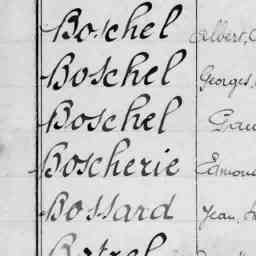 Boschel Albert,
Boschel Georges,
Boschel
Boscherie Edmond
Bossard Jean,